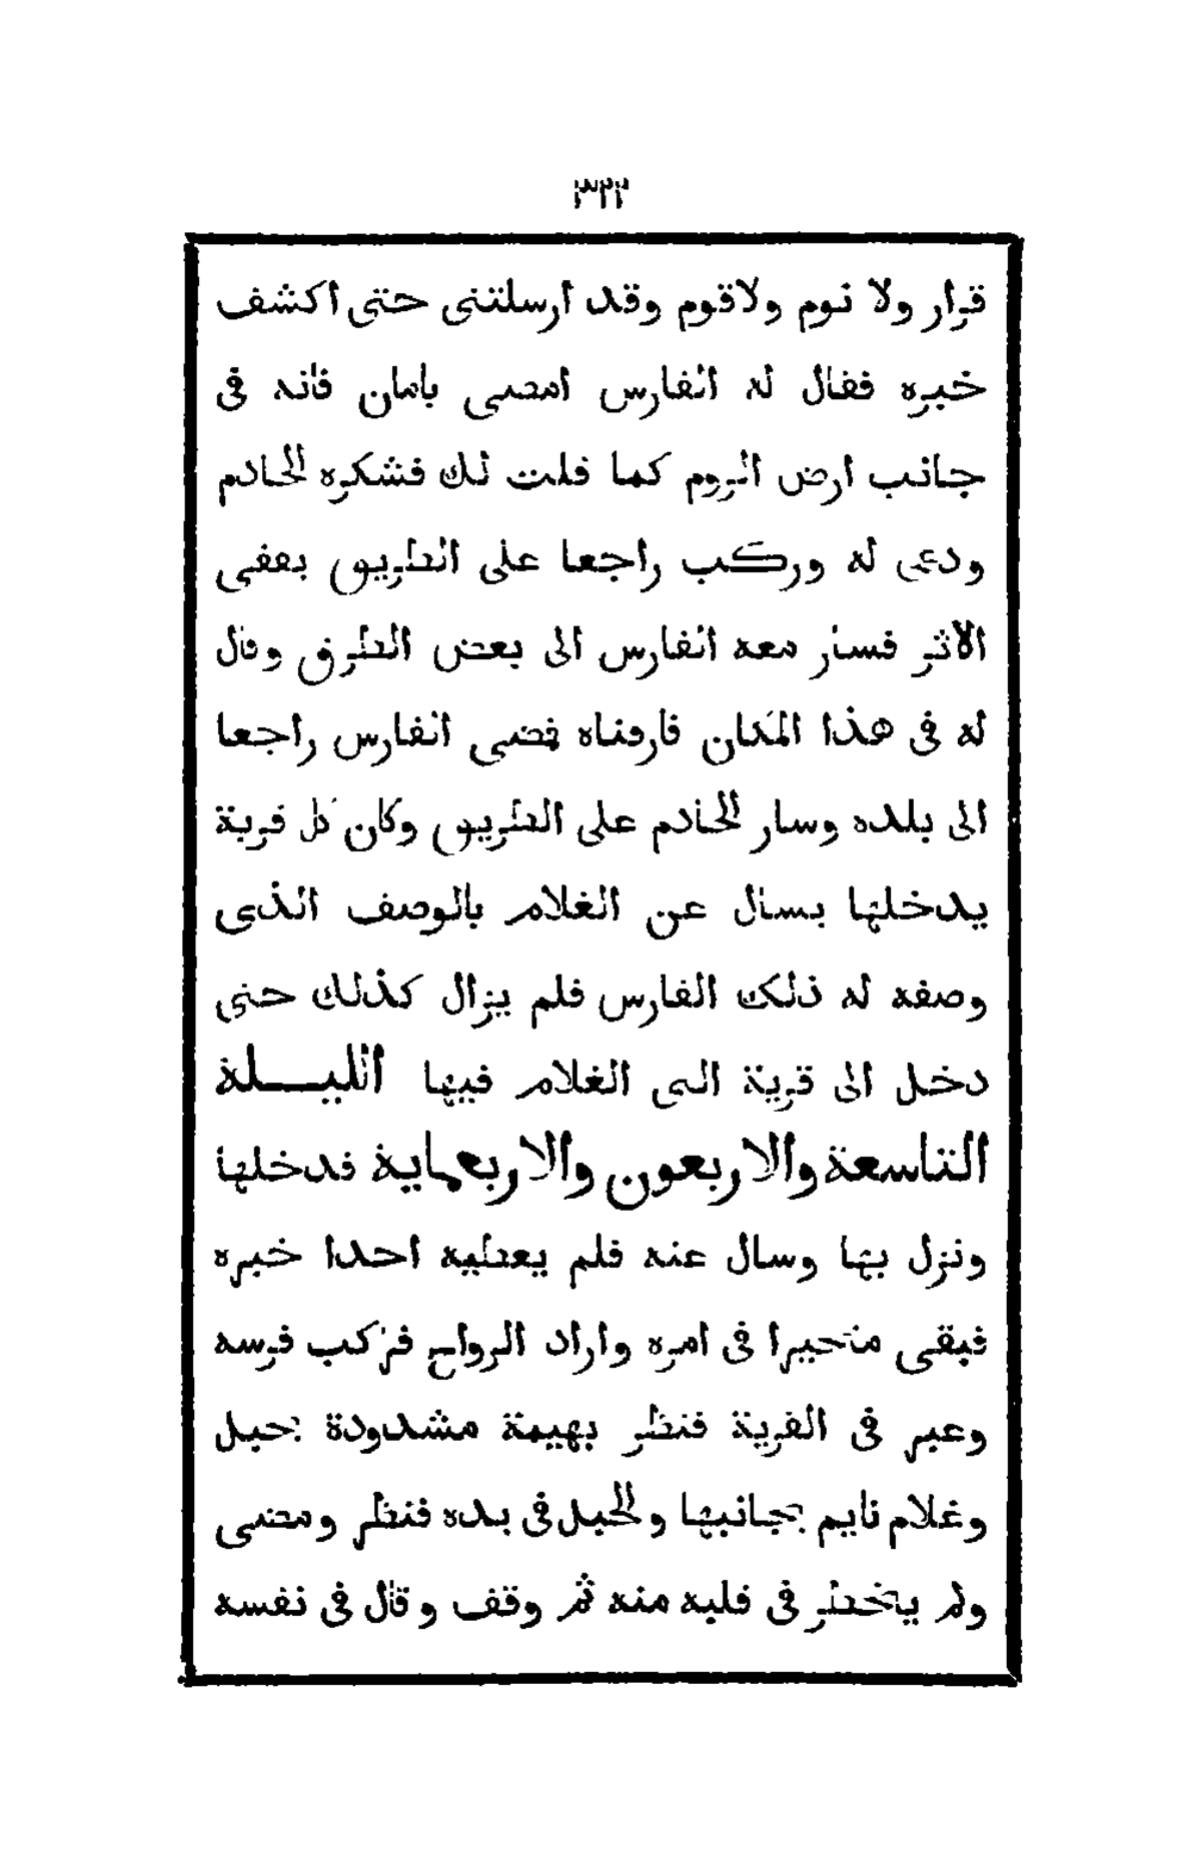 ٣٢٢
قرار ولا نوم ولاقوم وقد ارسلتنى حتى اكشف
خبره فقال له الفارس امضى بامان فانه فى
جانب ارض الروم كما قلت لك فشكره الخادم
ودعى له وركب راجعا على الطريق يقفى
الاثر فسار معه الفارس الى بعض الطرق وقال
له فى هذا المكان فارقناه فمضى الفارس راجعا
الى بلده وسار الخادم على الطريق وكان كل قرية
يدخلها يسال عن الغلام بالوصف الذى
وصفه له ذلك الفارس فلم يزال كذلك حتى
دخل الى قرية الى الغلام فيها الليلة
التاسعة والاربعون والاربعماية فدخلها
ونزل بها وسال عنه فلم يعطيه احدا خبره
فبقى متحيرا فى امره واراد الرواح فركب فرسه
وعبر فى القرية فنظر بهيمة مشدودة بحبل
وغلام نايم بجانبها والحبل فى يده فنظر ومضى
ولم يخطر فى قلبه منه ثم وقف وقال فى نفسه